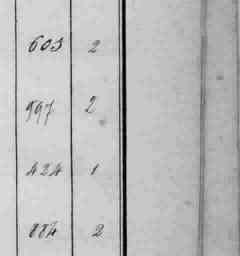 603 2
597 2
424 1
884 2